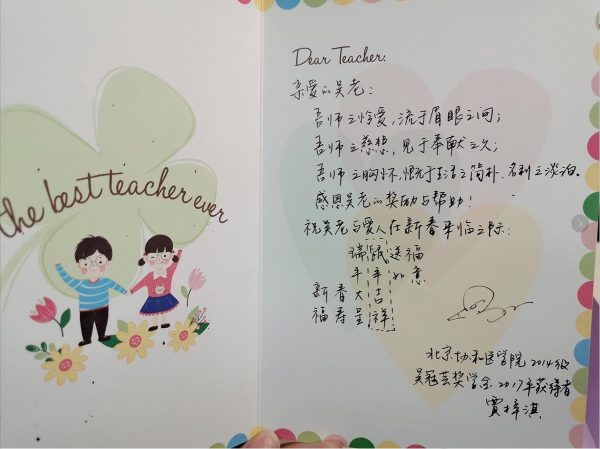 the best teacher ever
Dear Teacher:
亲爱的吴老:
吾师之怜爱,流于眉眼之间;
吾师之慈悲,见于奉献之久;
吾师之胸怀,慨于生活之简朴、名利之淡泊。
感恩吴老的奖励与帮助!
祝吴老与爱人在新春来临之际:
瑞鼠送福
年年如意
新春大吉
福寿呈祥
北京协和医学院 2014级
吴冠芸奖学金 2017年获得者
贾梓淇